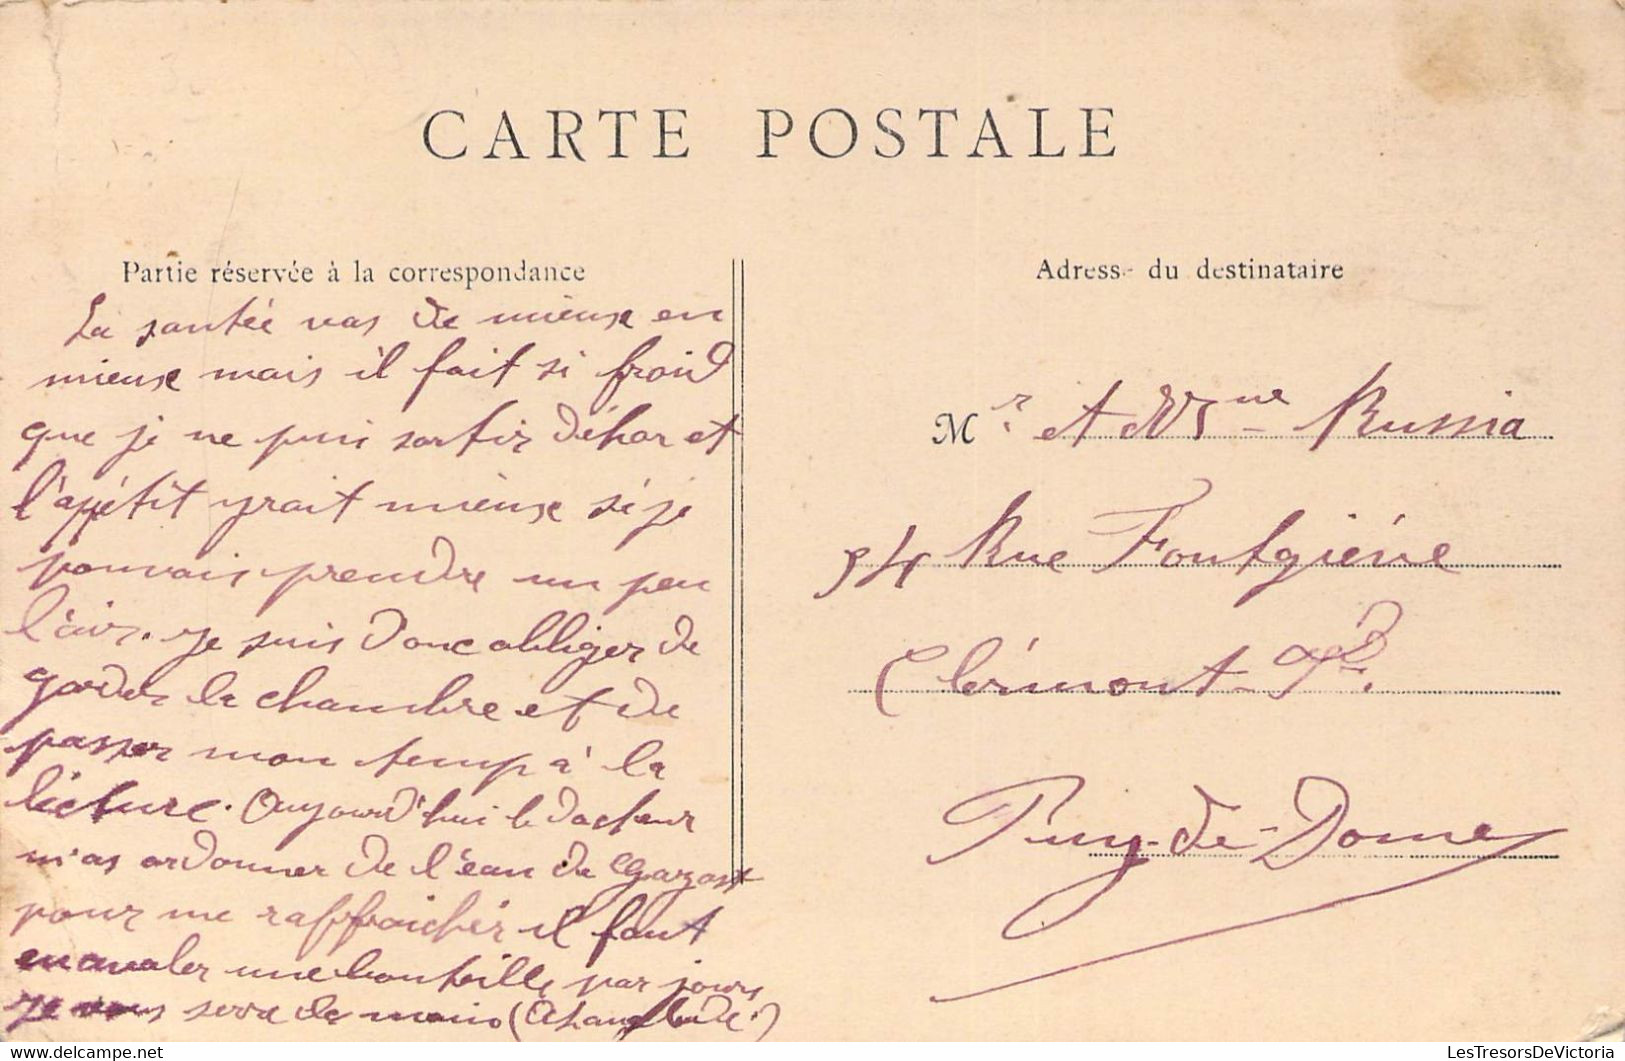 CARTE POSTALE
Partie réservée à la correspondance
La santée vas de mieuse en
mieuse mais il fait si froid
que je ne puis sortir déhor et
l'appétit yrait mieuse si je
pouvais prendre un peu
l'air. Je suis donc obliger de
garder la chambre et de
passer mon temp à la
licture. Aujourd'hui le docteur
m'as ordonner de l'eau de Gazost
pour me raffraichir il faut
en avaler une bouteille par jours
Je vous serre la main
Adresse du destinataire
Mr. et Mme Russia
54 Rue Fontgiéve
Clérmont-Fd.
Puy-de-Dome
LesTresorsDeVictoria